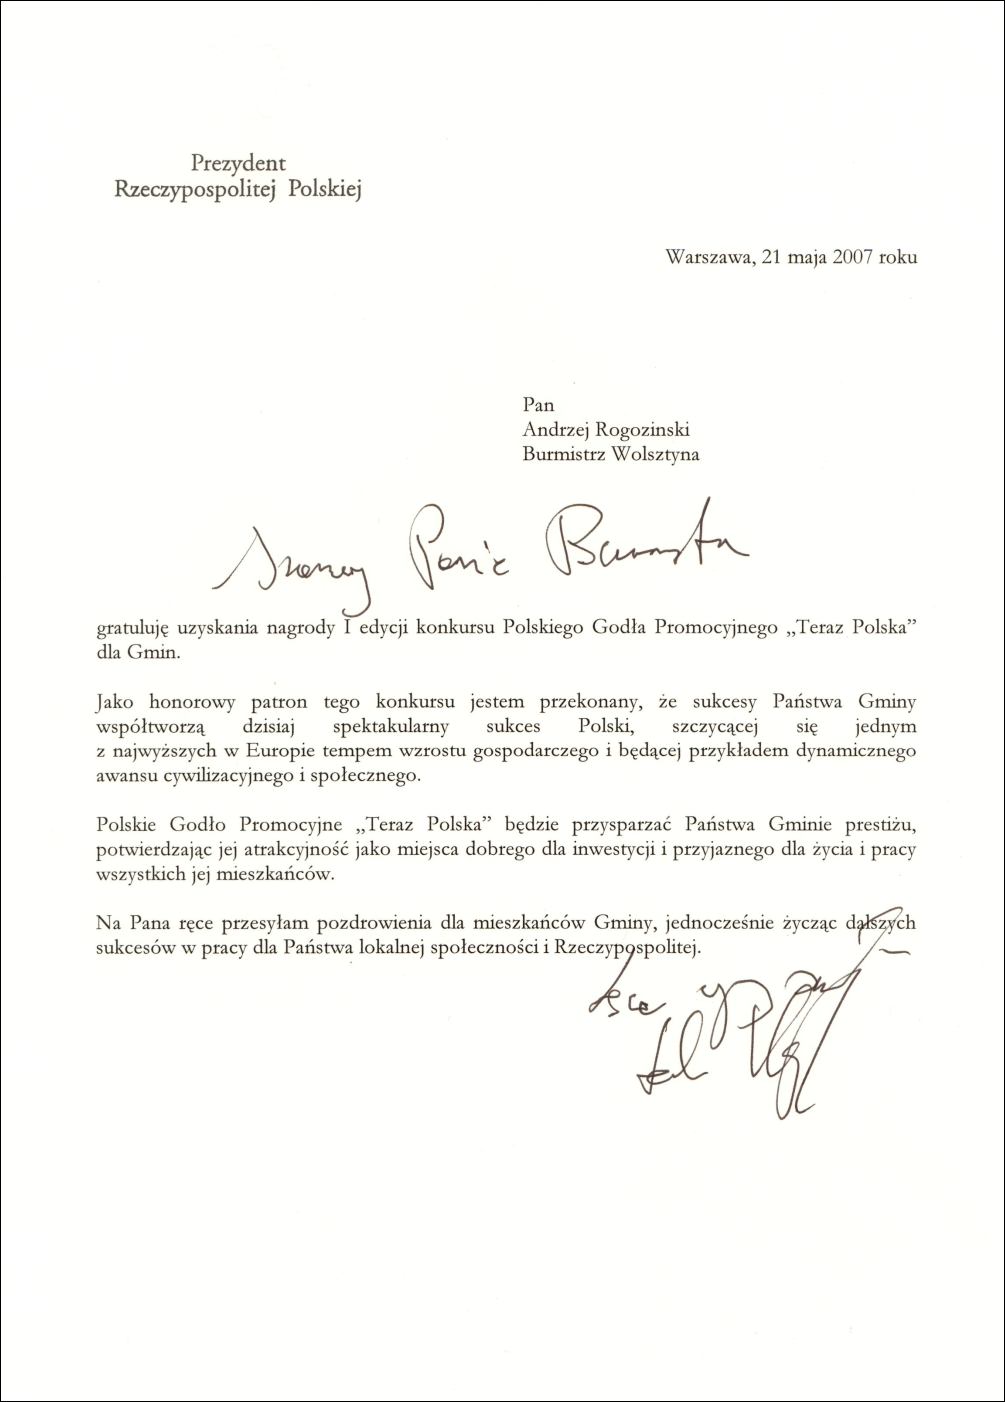 Prezydent
Rzeczypospolitej Polskiej
Warszawa, 21 maja 2007 roku
Pan
Andrzej Rogozinski
Burmistrz Wolsztyna
Szanowny Panie Burmistrzu
gratuluję uzyskania nagrody I edycji konkursu Polskiego Godła Promocyjnego „Teraz Polska”
dla Gmin.
Jako honorowy patron tego konkursu jestem przekonany, że sukcesy Państwa Gminy
współtworzą dzisiaj spektakularny sukces Polski, szczycącej się jednym
z najwyższych w Europie tempem wzrostu gospodarczego i będącej przykładem dynamicznego
awansu cywilizacyjnego i społecznego.
Polskie Godło Promocyjne „Teraz Polska” będzie przysparzać Państwa Gminie prestiżu,
potwierdzając jej atrakcyjność jako miejsca dobrego dla inwestycji i przyjaznego dla życia i pracy
wszystkich jej mieszkańców.
Na Pana ręce przesyłam pozdrowienia dla mieszkańców Gminy, jednocześnie życząc dalszych
sukcesów w pracy dla Państwa lokalnej społeczności i Rzeczypospolitej.